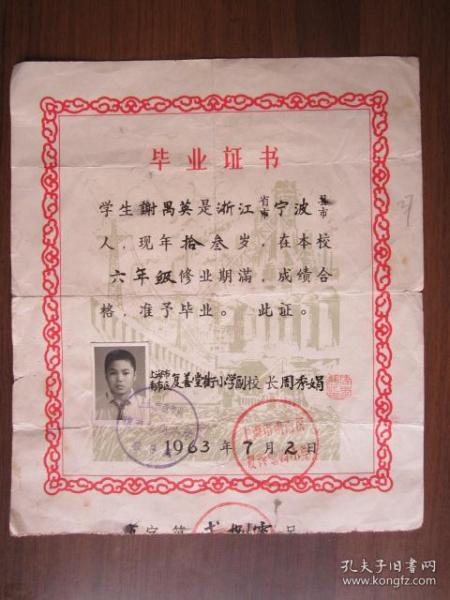 毕业证书
学生謝禺英是浙江省市宁波县市
人，现年拾叁岁，在本校
六年级修业期满，成绩合
格，准予毕业。此证。
上海市南市区复善堂街小学副校长周秀娟
1963年7月2日
字第 捌零 号
孔夫子旧书网
www.kongfz.com